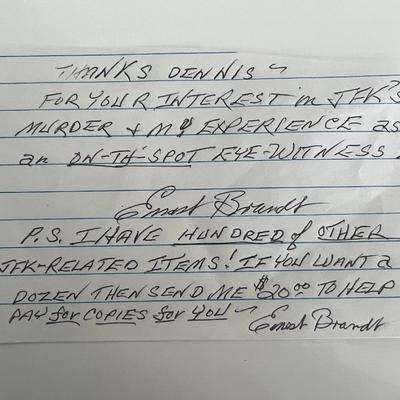 THANKS DENNIS ~
FOR YOUR INTEREST in JFK'S
MURDER & MY EXPERIENCE as
an ON-TH-SPOT EYE-WITNESS.
Ernest Brandt
P.S. I HAVE HUNDRED of OTHER
JFK-RELATED ITEMS! IF YOU WANT a
DOZEN THEN SEND ME $20.00 TO HELP
PAY for COPIES for YOU ~ Ernest Brandt